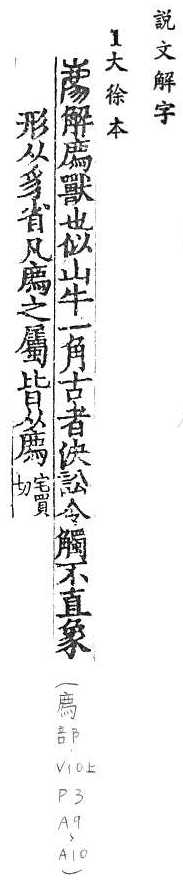 說文解字
1大徐本
廌解廌獸也似山牛一角古者決訟令觸不直象
形从豸省凡廌之屬皆从廌宅買切
(廌部
V10上
P3
A9
〜
A10)